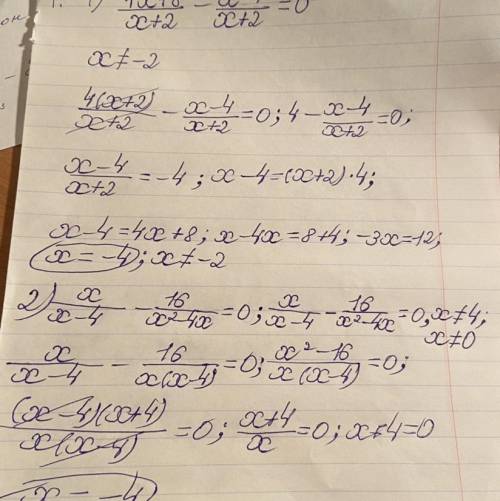 1. 1) (4x+8)/(x+2) - (x-4)/(x+2) = 0
x ≠ -2
4(x+2)/(x+2) - (x-4)/(x+2) = 0; 4 - (x-4)/(x+2) = 0;
(x-4)/(x+2) = -4; x-4=(x+2)·4;
x-4=4x+8; x-4x=8+4; -3x=12;
x=-4; x≠-2
2) x/(x-4) - 16/(x²-4x) = 0; x/(x-4) - 16/(x²-4x) = 0, x≠4;
x≠0
x/(x-4) - 16/(x(x-4)) = 0; (x²-16)/(x(x-4)) = 0;
(x-4)(x+4)/(x(x-4)) = 0; (x+4)/x = 0; x+4=0
x=-4